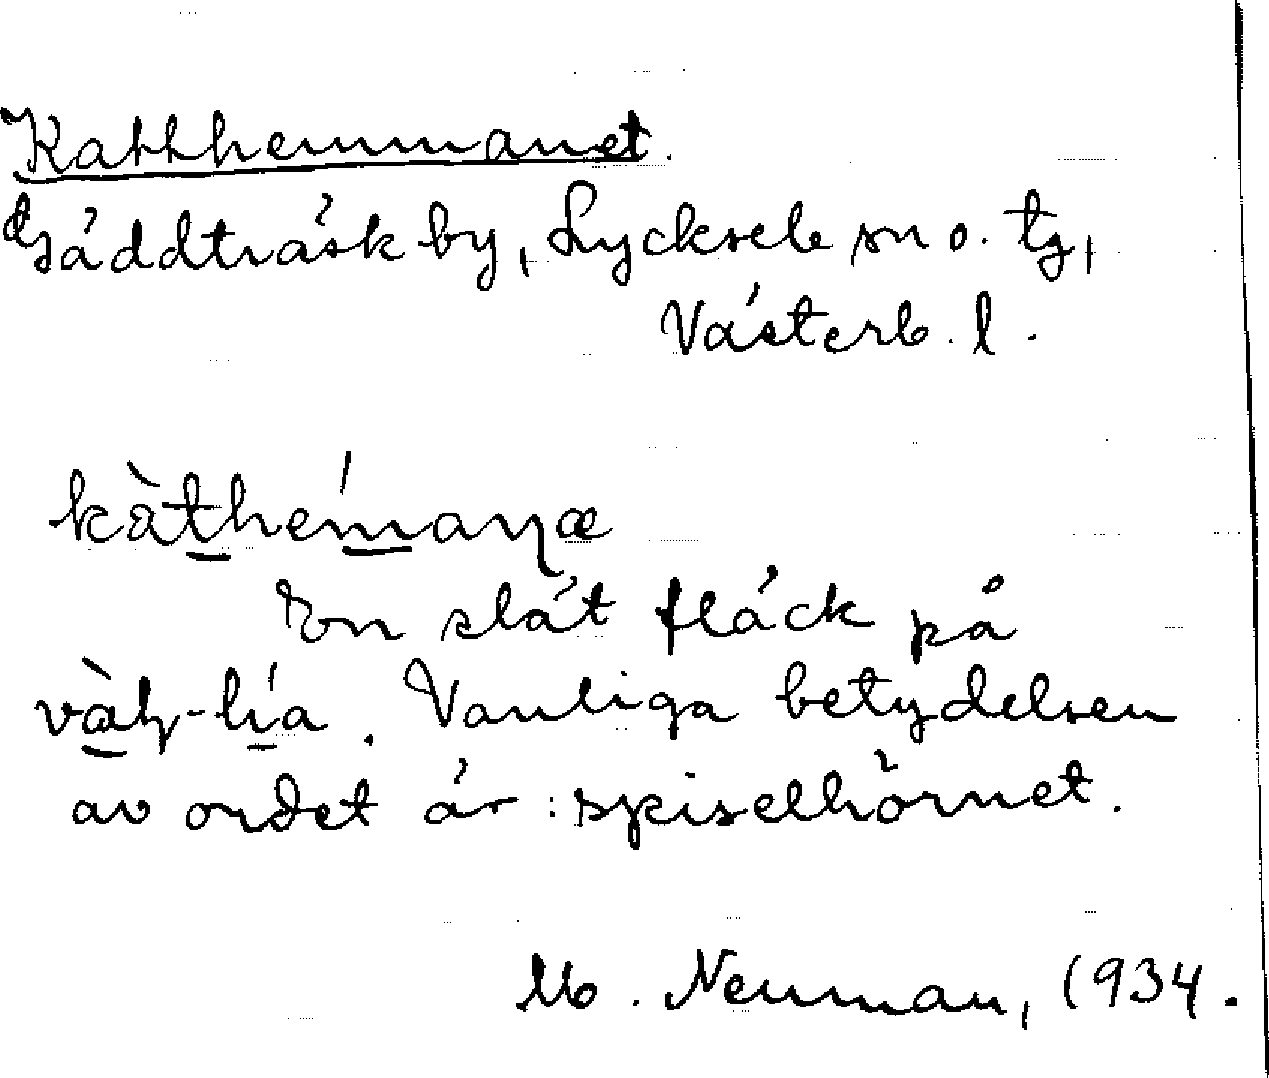 Katthemmanet.
Gäddträsk by, Lycksele sn o. tg,
Västerb. l.
kàthémaŋæ
En slät fläck på
Vanliga betydelsen
av ordet är: spiselhörnet.
M. Neuman, 1934.